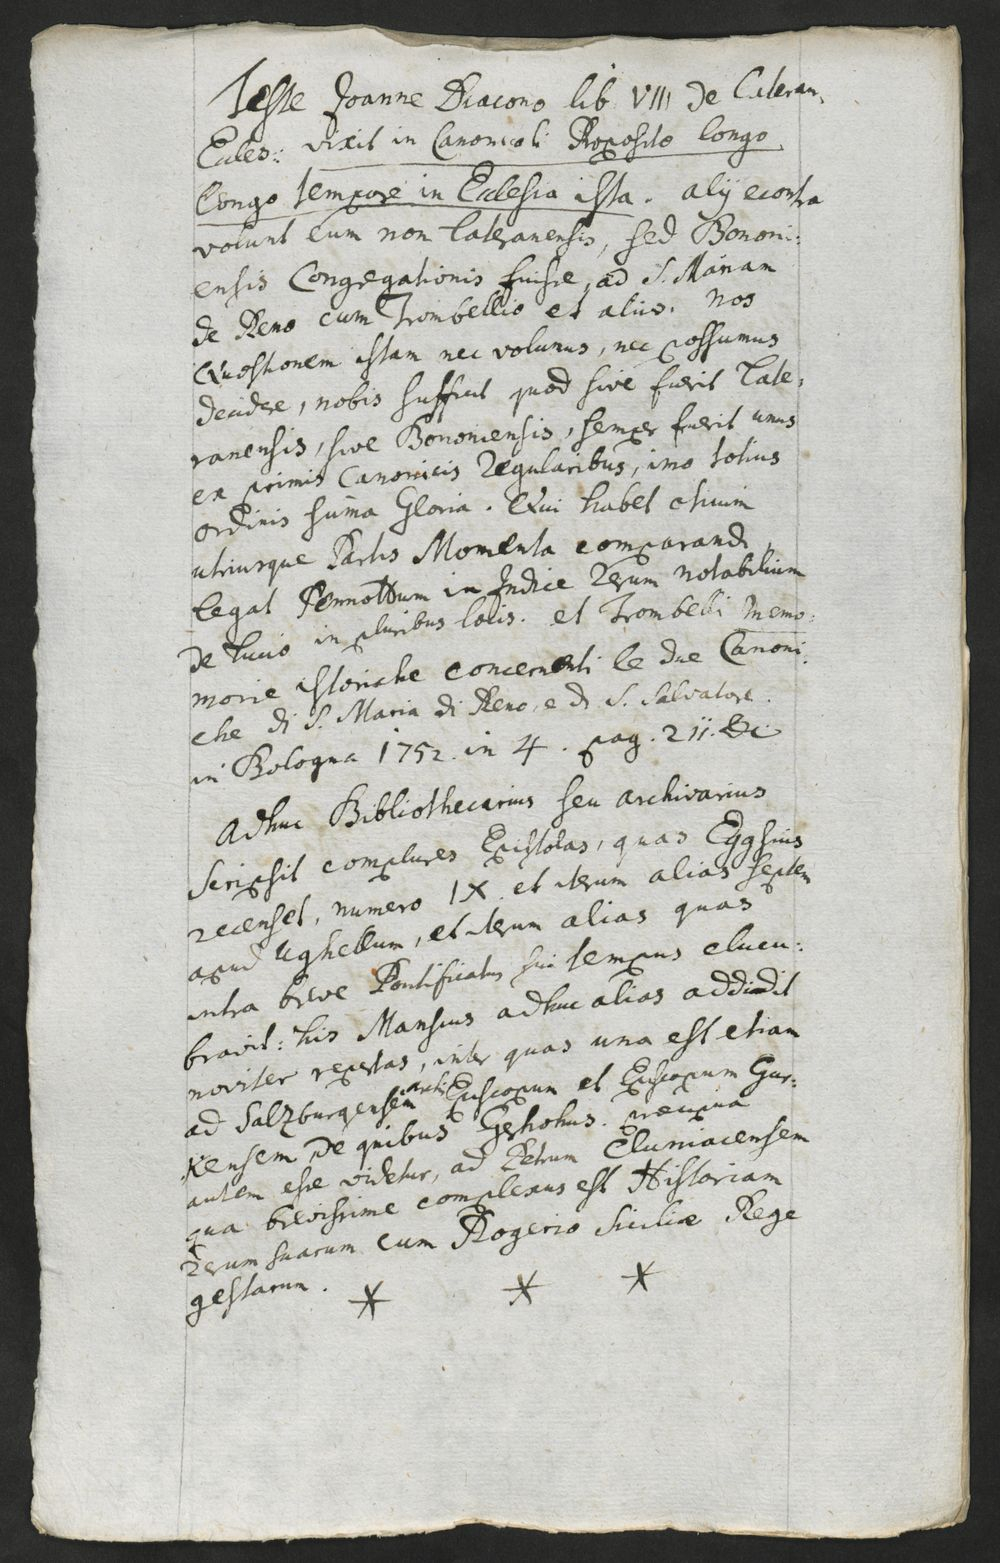 Teste Joanne Diacono lib VIII de Lateran.
Eccles:: vixit in Canonicali Proposito longo
longo tempore in Ecclesia ista. alij econtra
volunt eum non Lateranensis, sed Bononi:
ensis Congregationis fuisse, ad S. Mariam
de Reno cum Trombellio et aliis. Nos
Quæstionem istam nec volumus, nec possumus
decidere, nobis sufficit quod sive fuerit Late,
ranensis, sive Bononiensis, semper fuerit unus
ex primis Canonicis Regularibus, imo totius
ordinis sum̄a Gloria. Qui habet otium
utriusque Partis Momenta comparandi,
legat Pennottum in Indice Rerum notabilium
de Lucio in pluribus locis. et Trombelli memo:
morie istoriche concernenti le due Canoni:
che di S. Maria di Reno, e di S. Salvatore.
in Bologna 1752. in 4. pag. 211. &c
Adhuc Bibliothecarius seu archivarius
scripsit complures Epistolas, quas Eggsius
recenset, numero IX. et iterum alias septem
apud Ughellum, et iterum alias quas
intra breve Pontificatus sui tempus elucu:
bravit: his Mansius adhuc alias addidit
noviter repertas, inter quas una est etiam
ad Salzburgensem archi Episcopum et Episcopum Gur:
Kensem de quibus Gerhohus. præcipua
autem esse videtur, ad Petrum Cluniacensem
qua brevissime complexus est Historiam
Rerum suarum cum Rogerio Siciliæ Rege
gestarum. * * *